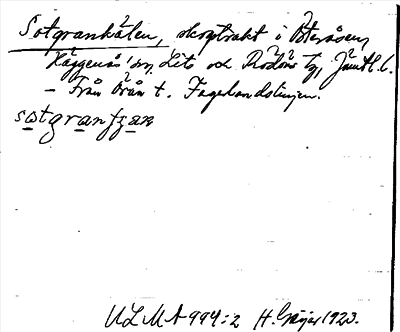 Sotgrankälen, skogtrakt i Österåsen,
Häggenås sn, Lits och Rödöns tg, Jämtl. l.
– Från Brån t. Fagerlandstinjen.
sotgranfzan
ULMA 994:2 H. Geijer 1923.